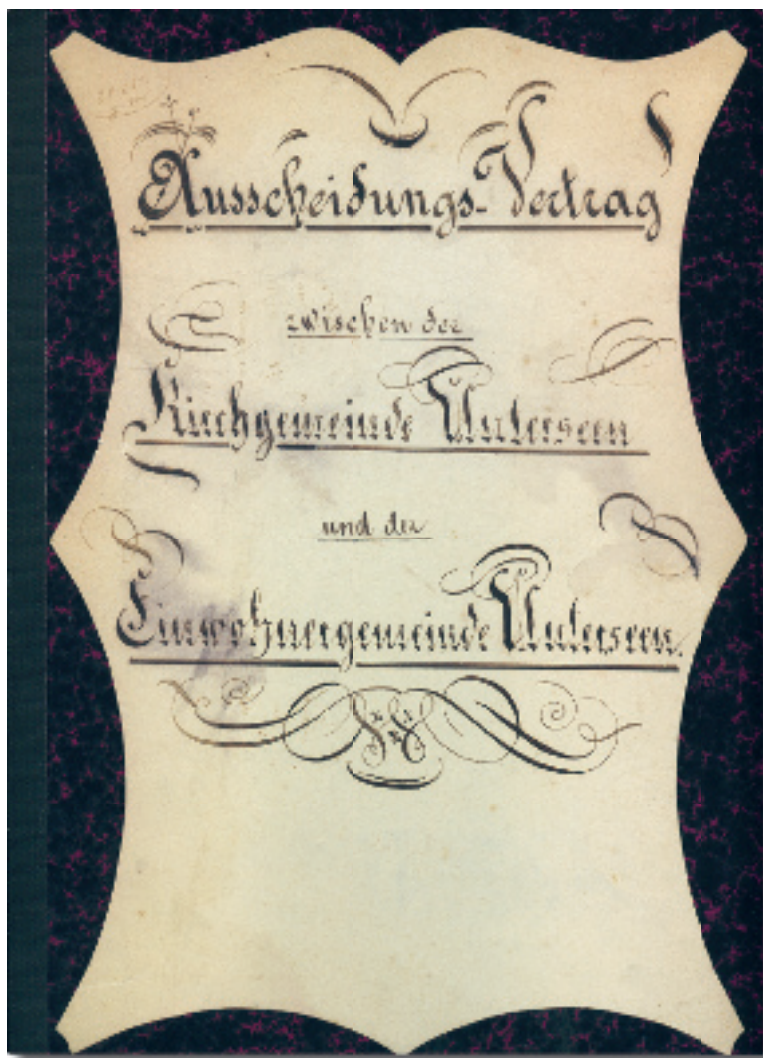 Ausscheidungs-Vertrag
zwischen der
Kirchgemeinde Unterseen
und der
Einwohnergemeinde Unterseen.